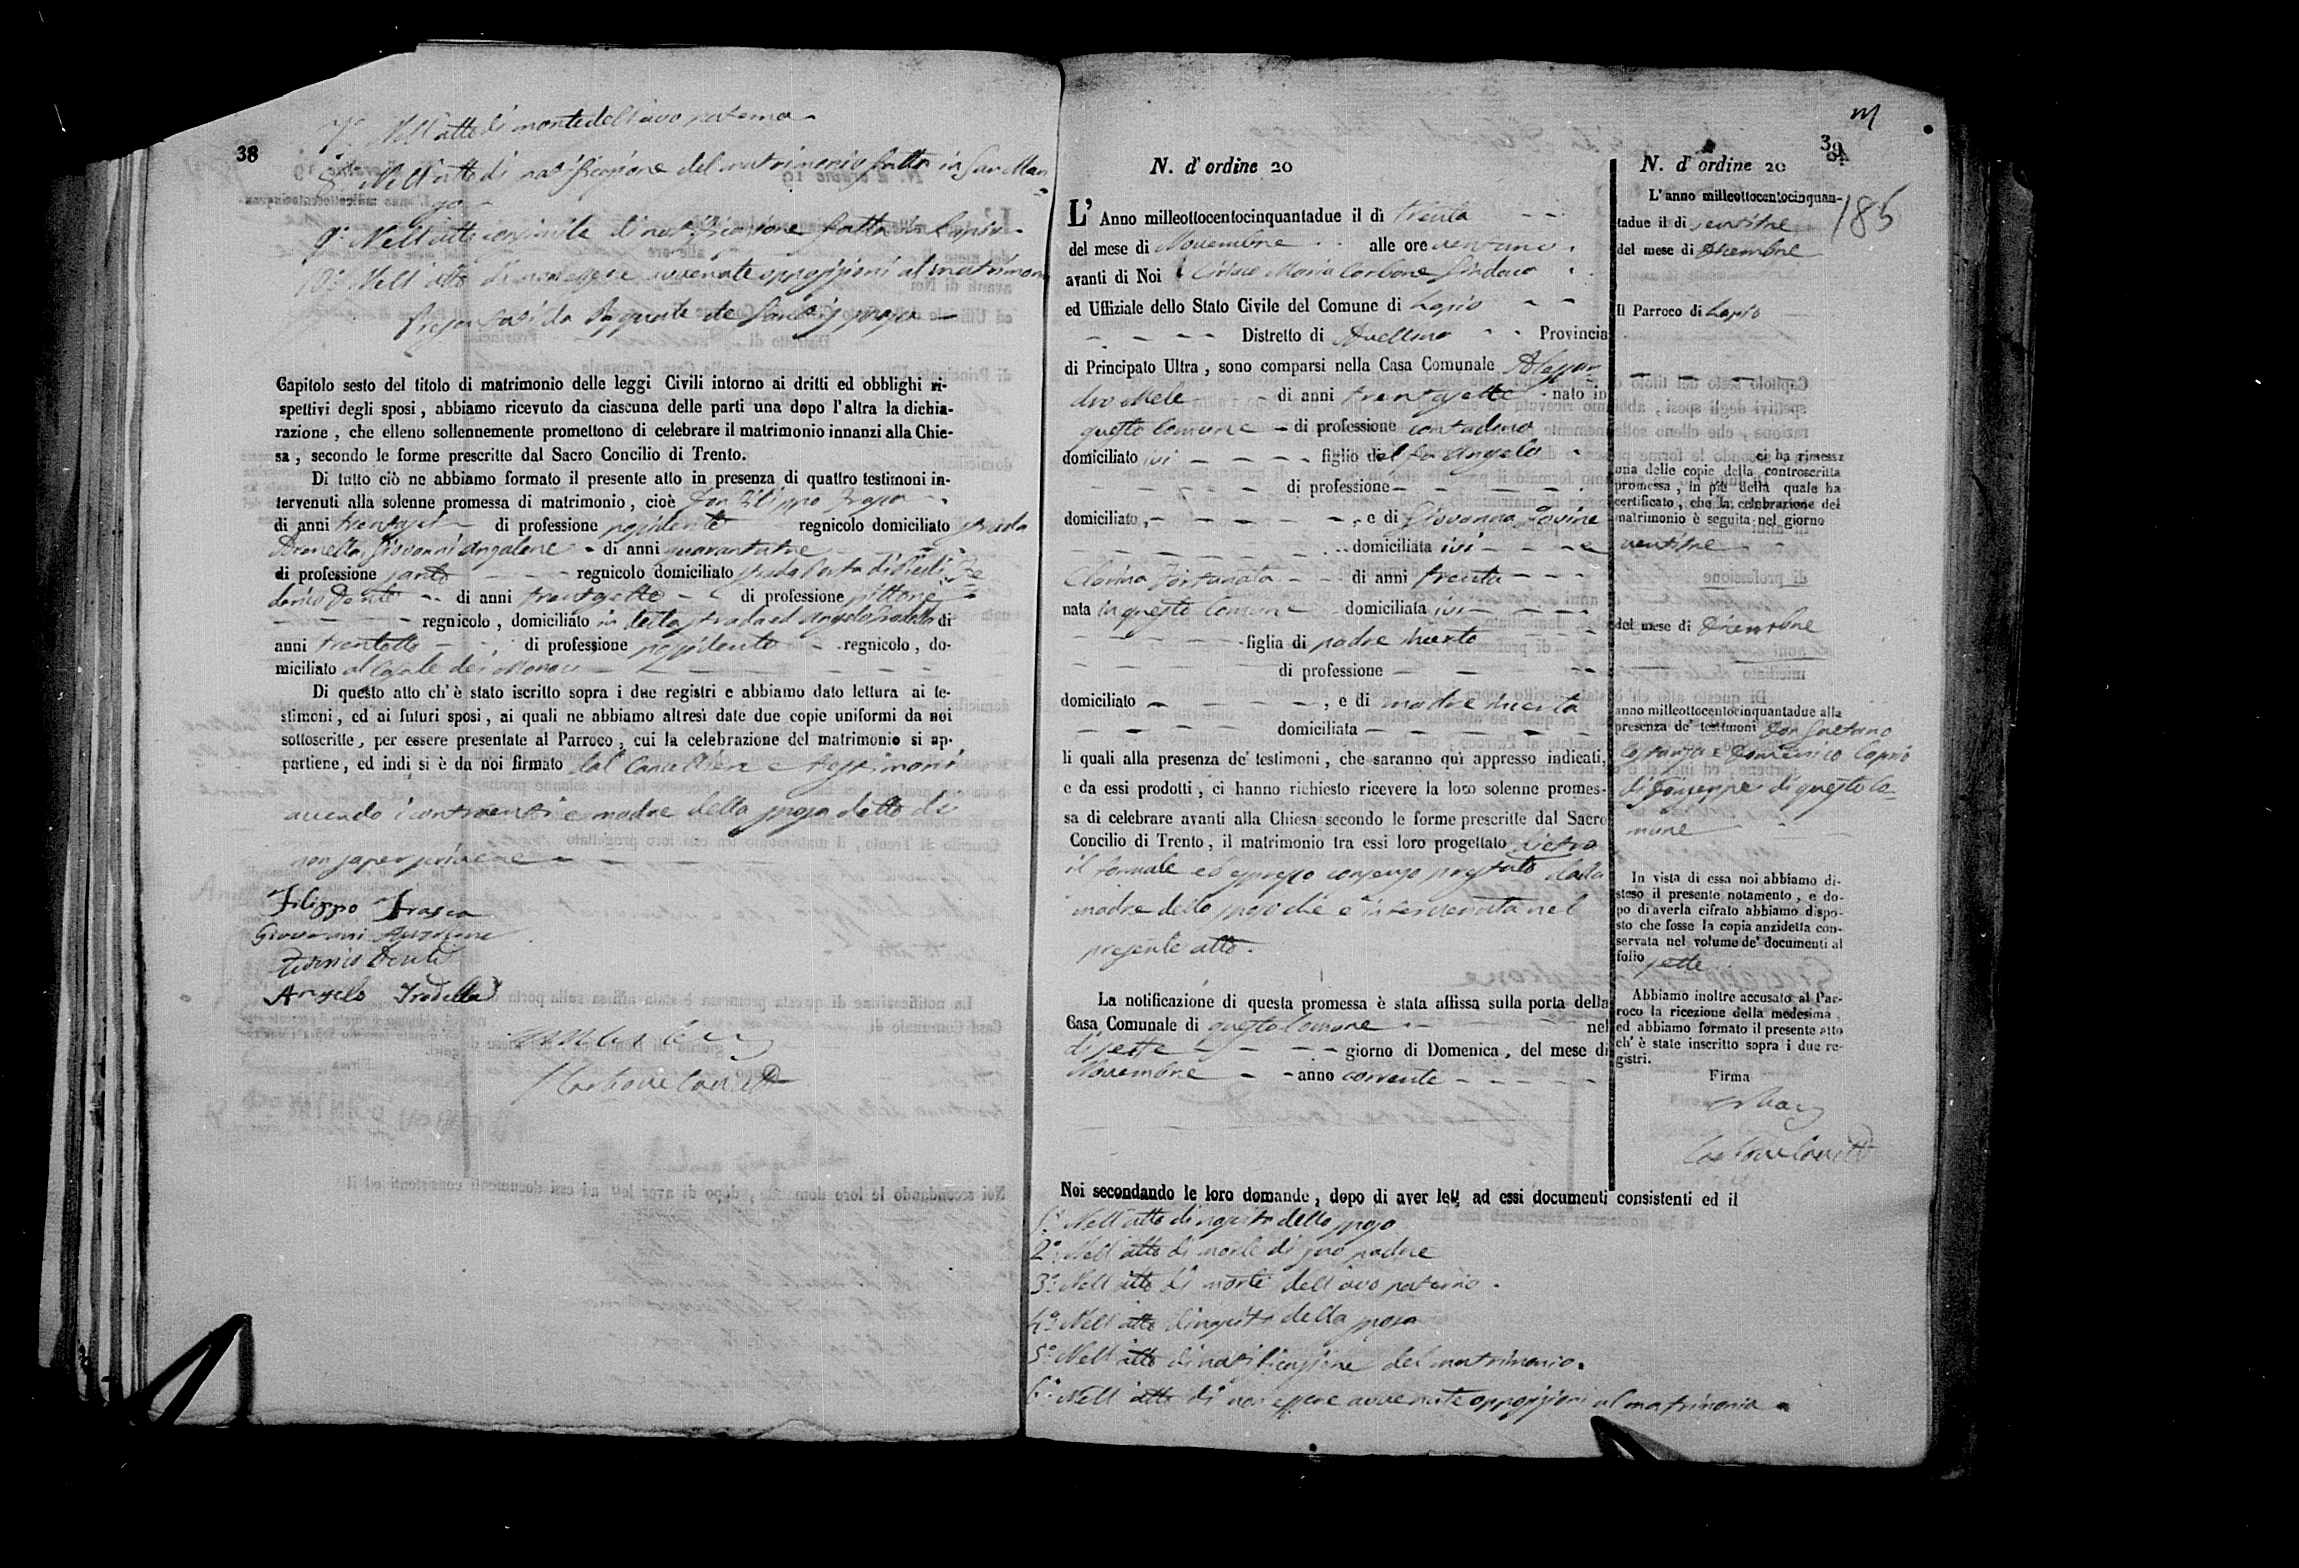 38
7.° Nell'atto di morte dell'avo paterno
8.° Nell'atto di notificazione del matrimonio fatta in San Man=
go
9.° Nell'atto consimile di notificazione fatta in Lapio
10.° Nell'atto di non essere avvenute opposizioni al matrimonio
Capitolo sesto del titolo di matrimonio delle leggi Civili intorno ai dritti ed obblighi ri-
spettivi degli sposi, abbiamo ricevuto da ciascuna delle parti una dopo l'altra la dichia-
razione, che elleno sollennemente promettono di celebrare il matrimonio innanzi alla Chie-
sa, secondo le forme prescritte dal Sacro Concilio di Trento.
Di tutto ciò ne abbiamo formato il presente atto in presenza di quattro testimoni in-
tervenuti alla solenne promessa di matrimonio, cioè Don Filippo Frasca
di anni di professione possidente regnicolo domiciliato strada
Giovanni Anzalone di anni quarantatre
di professione sarto regnicolo domiciliato strada Porta di Piedi, Fe
derico Dente di anni trentasette di professione pittore
regnicolo, domiciliato in detta strada ed Angelo Iradella di
anni trentotto di professione possidente regnicolo, do-
miciliato al Casale dei Monaci
Di questo atto ch'è stato iscritto sopra i due registri e abbiamo dato lettura ai te-
stimoni, ed ai futuri sposi, ai quali ne abbiamo altresì date due copie uniformi da noi
sottoscritte, per essere presentate al Parroco, cui la celebrazione del matrimonio si ap-
partiene, ed indi si è da noi firmato dal Cancelliere e testimoni
avendo i contraenti e madre della sposa detto di
non saper scrivere
Filippo Frasca
Giovanni Anzalone
Federico Dente
Angelo Iradella
Carbone Canc.
39
185
N. d'ordine 20
L'Anno milleottocentocinquantadue il dì trenta
del mese di Novembre alle ore ventuno
avanti di Noi Ciriaco Maria Carbone Sindaco
ed Uffiziale dello Stato Civile del Comune di Lapio
Distretto di Avellino Provincia
di Principato Ultra, sono comparsi nella Casa Comunale Alessan
dro Mele di anni trentasette nato in
questo Comune di professione contadino
domiciliato ivi figlio del fu Angelo
di professione
domiciliato, e di Giovanna Iovine
domiciliata ivi e
Clorina Fortunata di anni trenta
nata in questo Comune domiciliata ivi
figlia di padre incerto
di professione
domiciliato, e di madre incerta
domiciliata
li quali alla presenza de' testimoni, che saranno quì appresso indicati,
e da essi prodotti, ci hanno richiesto ricevere la loro solenne promes-
sa di celebrare avanti alla Chiesa secondo le forme prescritte dal Sacro
Concilio di Trento, il matrimonio tra essi loro progettato dietro
il formale ed espresso consenso prestato dalla
madre dello sposo che è intervenuta nel
presente atto.
La notificazione di questa promessa è stata affissa sulla porta della
Casa Comunale di questo Comune nel
dì sette giorno di Domenica, del mese di
Novembre anno corrente
Noi secondando le loro domande, dopo di aver letti ad essi documenti consistenti ed il
1.° Nell'atto di nascita dello sposo
2.° Nell'atto di morte di suo padre
3.° Nell'atto di morte dell'avo paterno.
4.° Nell'atto di nascita della sposa
5.° Nell'atto di notificazione del matrimonio.
6.° Nell'atto di non essere avvenute opposizioni al matrimonio
N. d'ordine 20
L'anno milleottocentocinquan-
tadue il dì ventitre
del mese di Dicembre
Il Parroco di Lapio
ci ha rimessa
una delle copie della controscritta
promessa, in piè della quale ha
certificato, che la celebrazione del
matrimonio è seguita nel giorno
ventitre
del mese di Dicembre
anno milleottocentocinquantadue alla
presenza de' testimoni Don Gaetano
Costanza e Domenico Caprio
di Giuseppe di questo Co=
mune
In vista di essa noi abbiamo di-
steso il presente notamento, e do-
po di averla cifrato abbiamo dispo-
sto che fosse la copia anzidetta con-
servata nel volume de' documenti al
folio sette
Abbiamo inoltre accusato al Par-
roco la ricezione della medesima,
ed abbiamo formato il presente atto
ch'è stato inscritto sopra i due re-
gistri.
Firma
Carbone Canc.